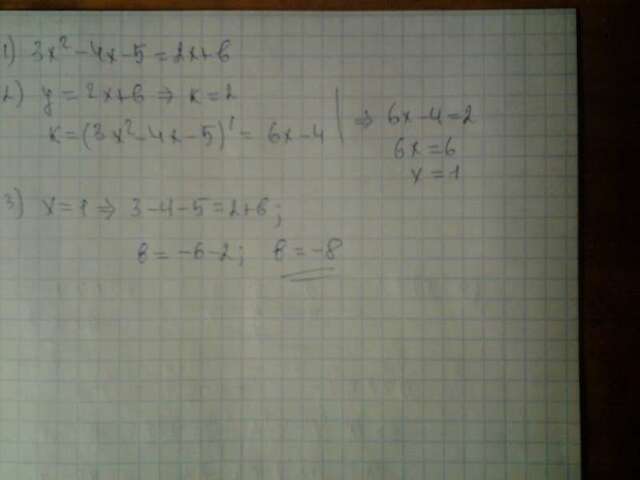 1) 3x²-4x-5=2x+в
2) y=2x+в ⇒ к=2
к=(3x²-4x-5)'=6x-4 | ⇒ 6x-4=2
6x=6
x=1
3) x=1 ⇒ 3-4-5=2+в;
в=-6-2; в=-8